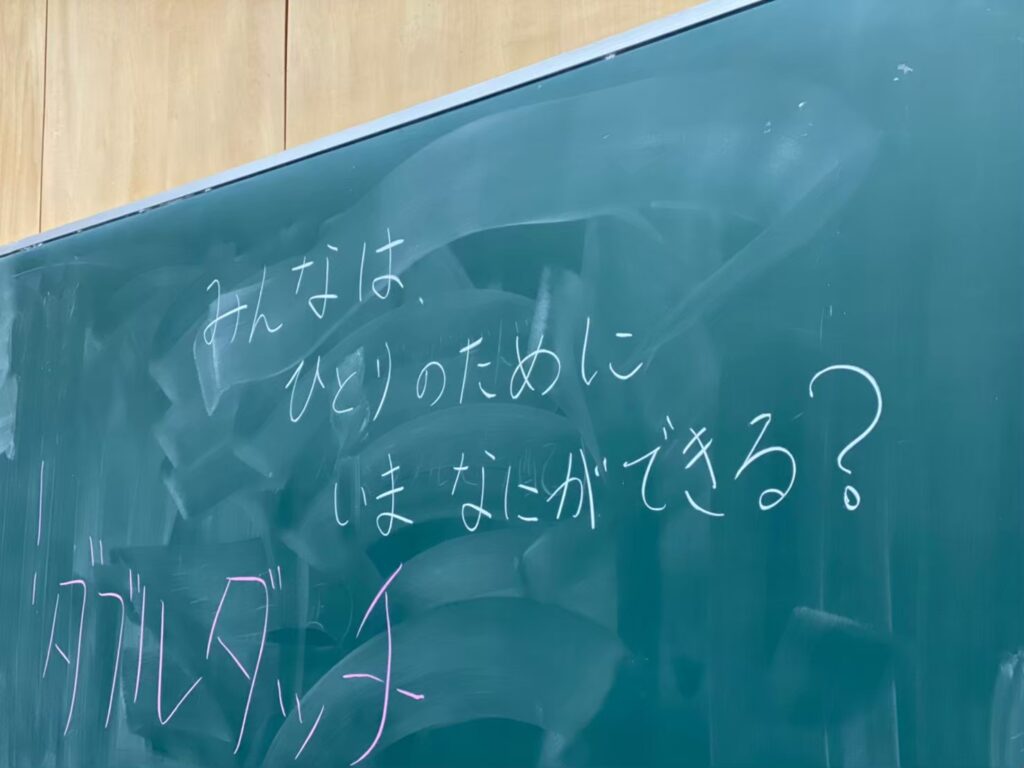 みんなは、
ひとりのために
いま なにができる?
ダブルダッチ